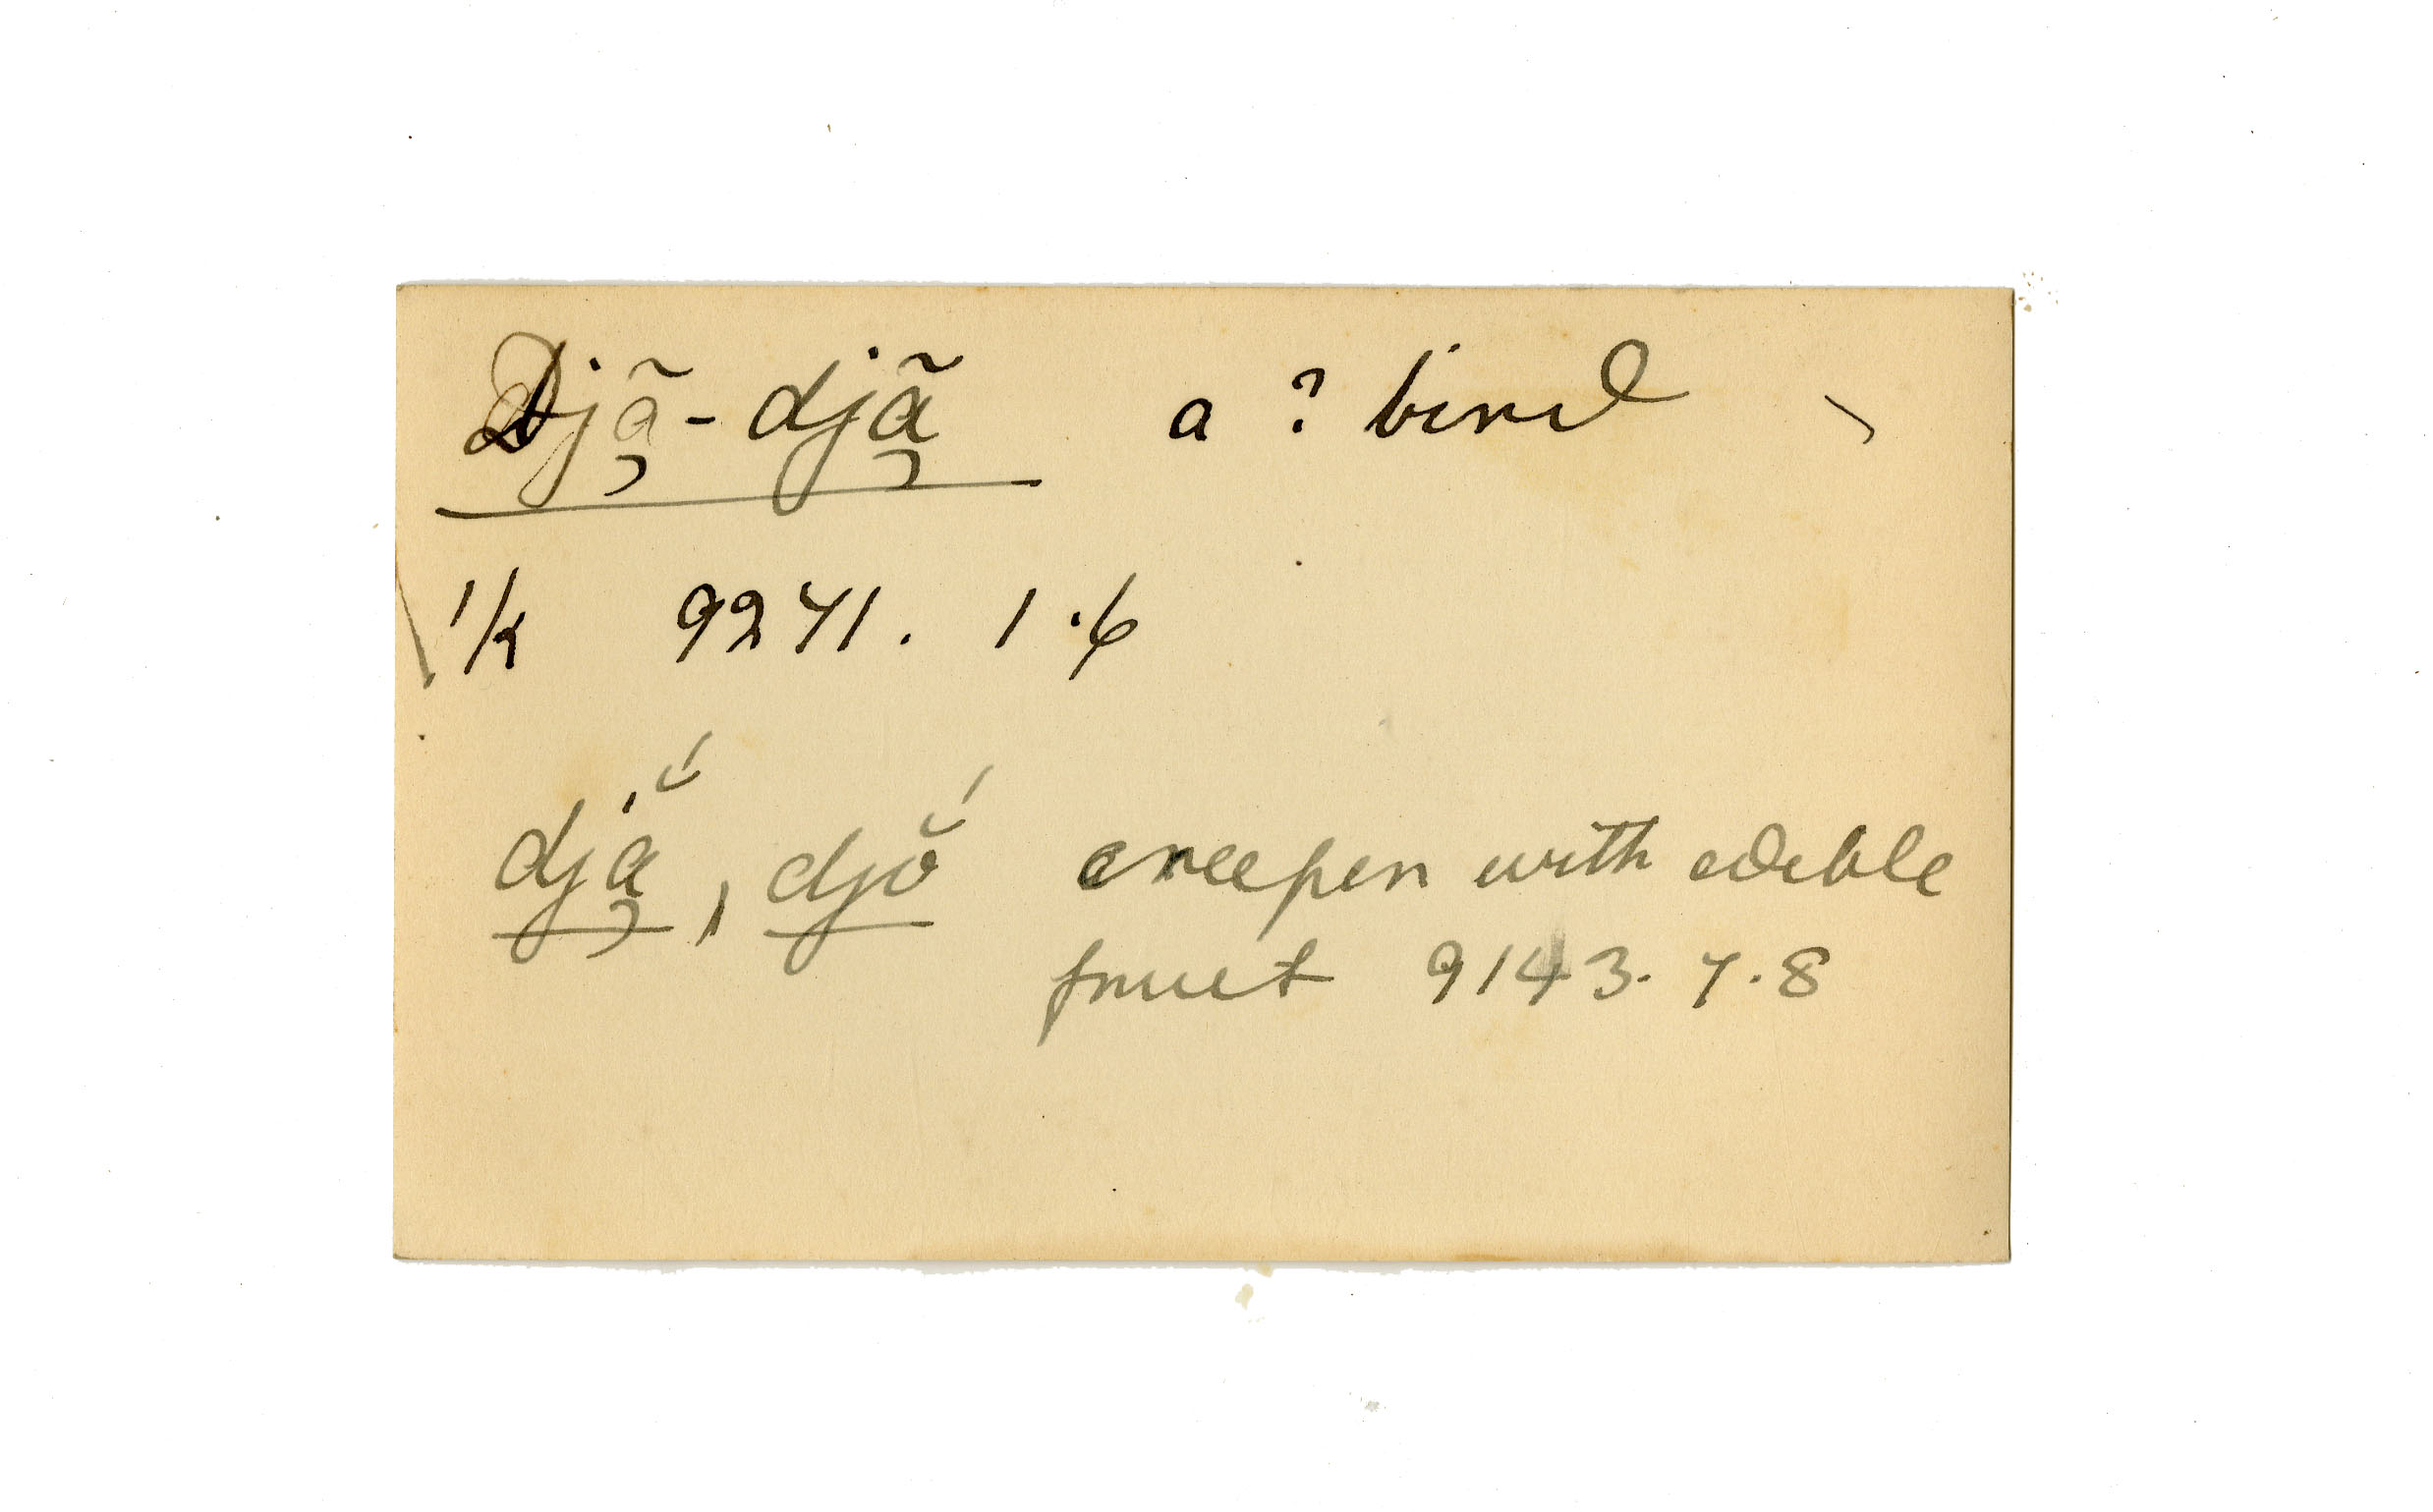 Djã̧-djã̧ a ? bird
1/k 9271. 1.6
djắ̧, djŏ́ creeper with edible
fruit 9143. 7.8